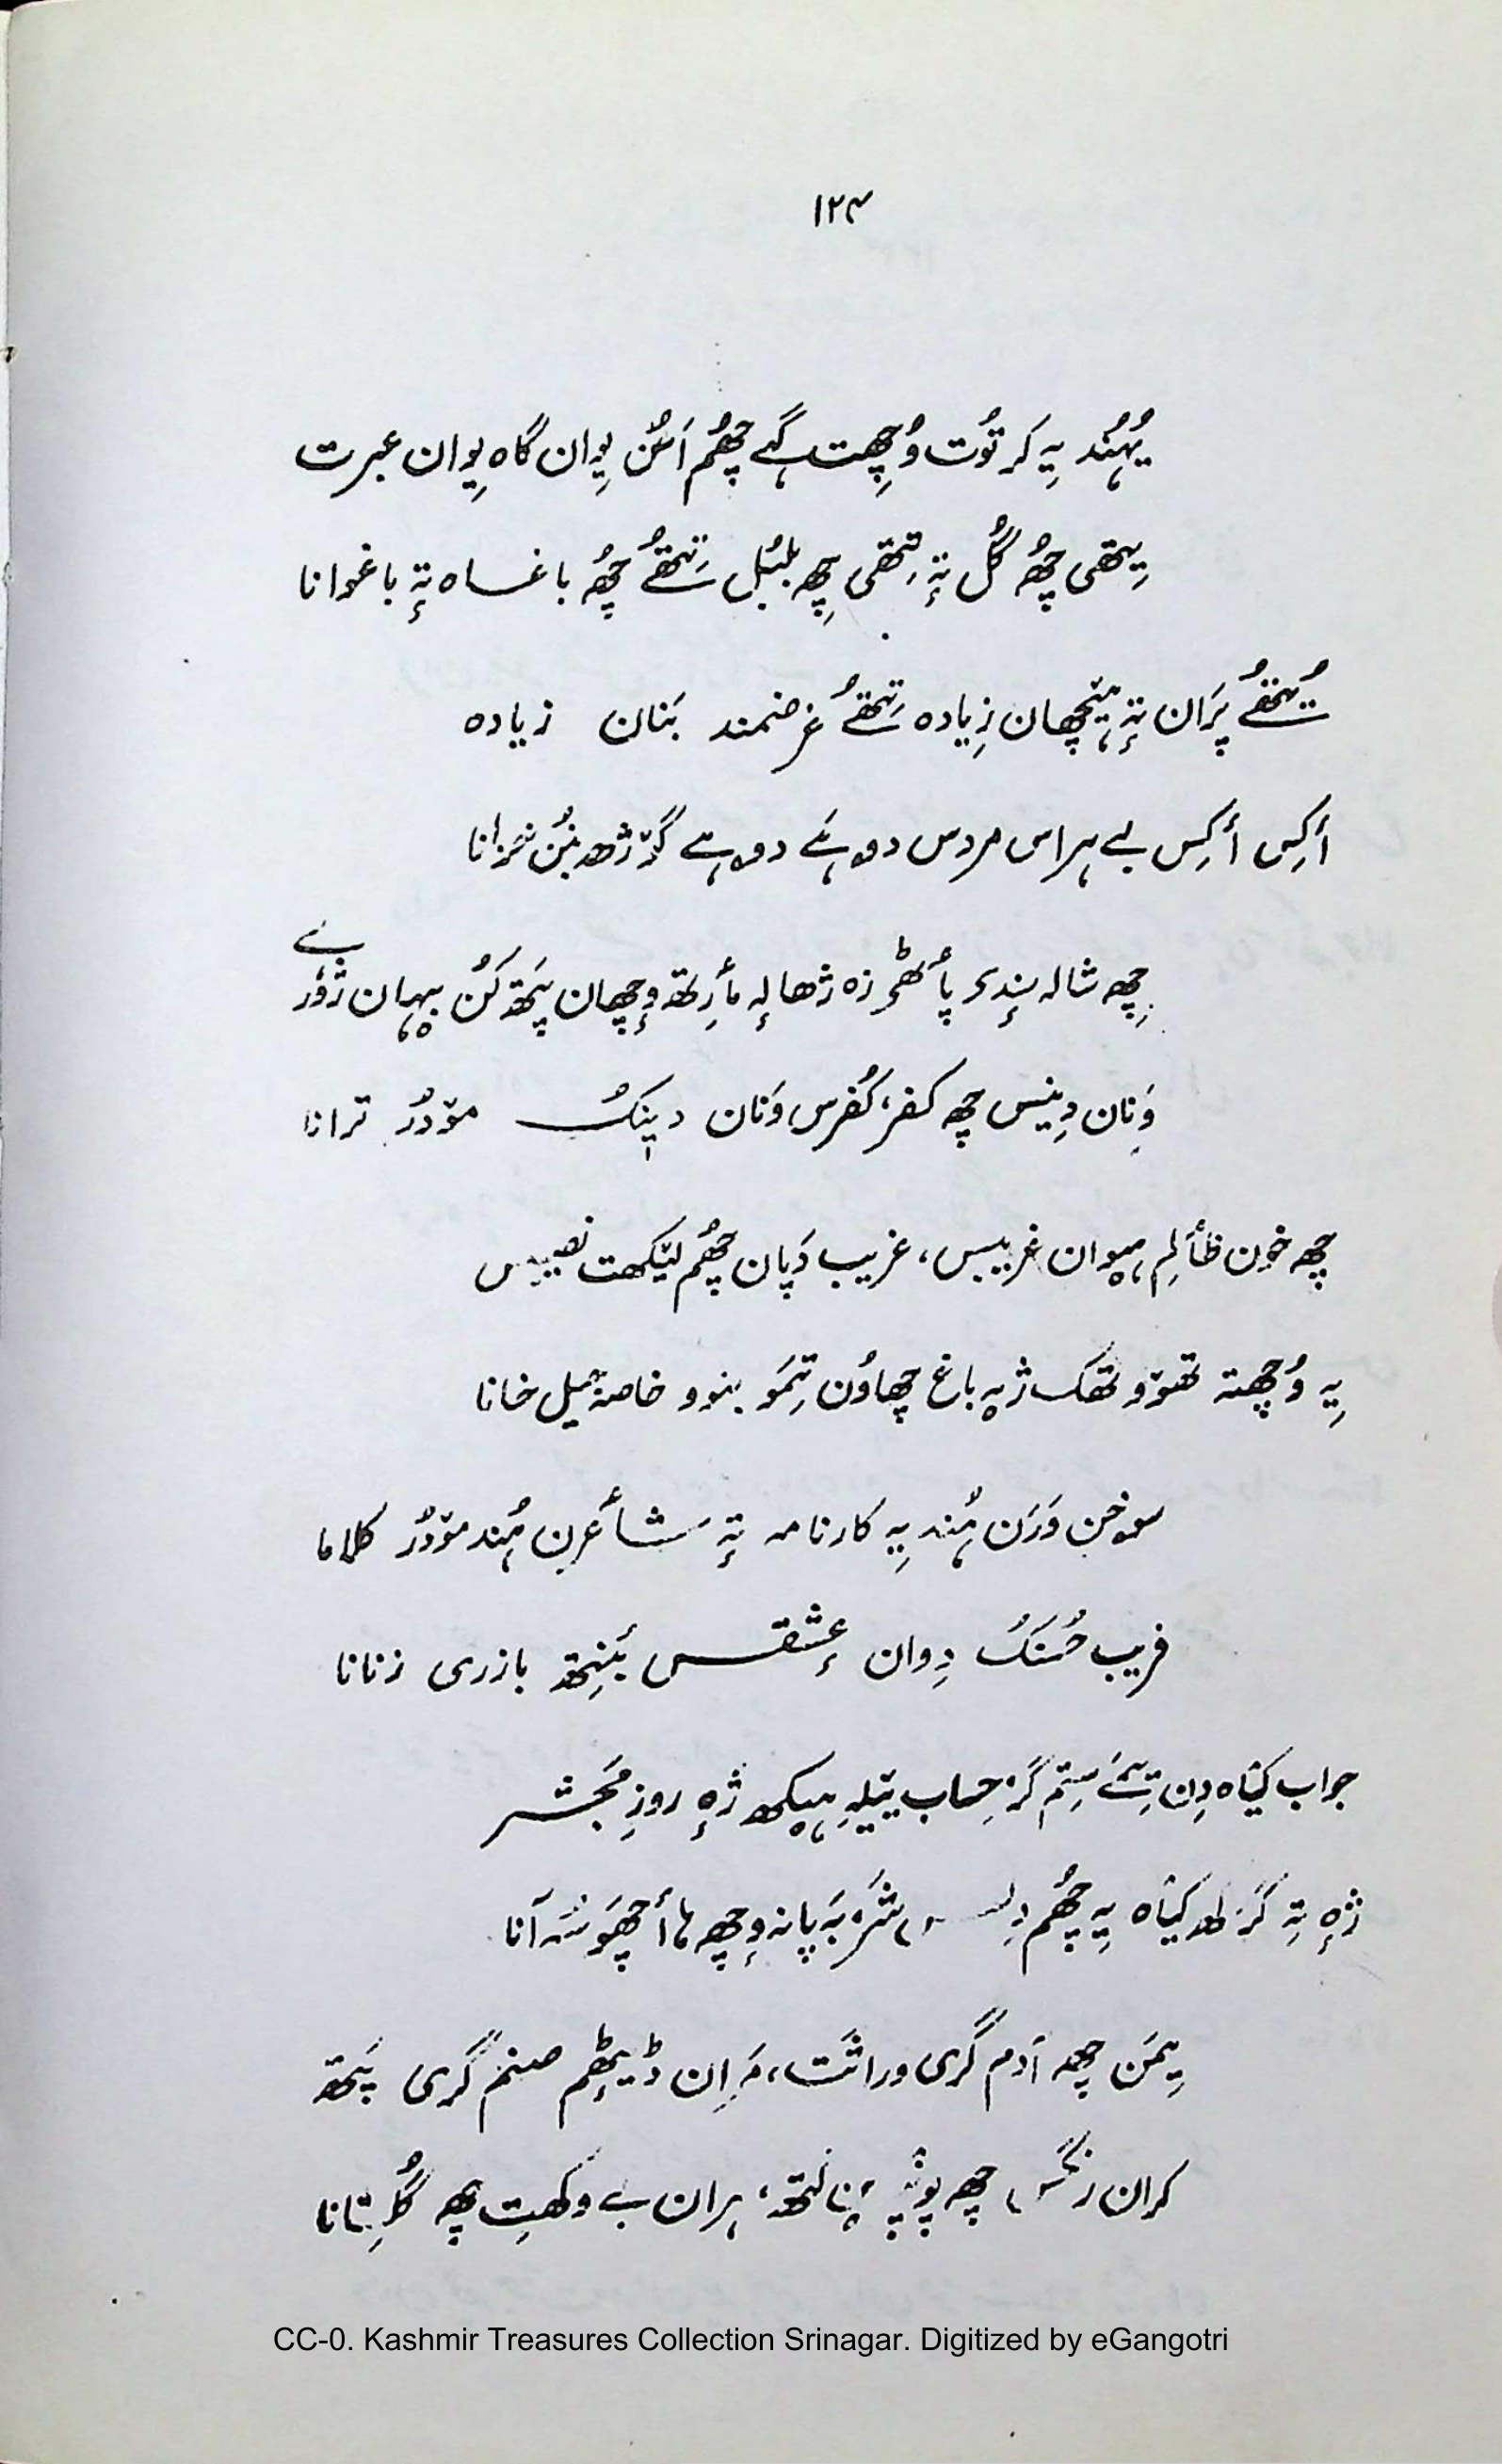 ۱۲۴
یُہُند یِہ کرتوٗت وُچھِت گہے چھُم اَسُن یِوان گاہ یِوان عبرت
یِتھی چھُ گُل تہٕ تِتھی چھِ بلبُل تِتھُے چھُ باغساہ تہٕ باغوانا
تُتھُے پَران تہٕ ہیٚچھان زِیادہ تِتھُے غرضمند بَنان زیادہ
أکِس أکِس بے ہراس مردس دوہَے دوہے گژژھہ بنُن
چھِ شالہ سٕندی پأٹھی زہ ژھالہٕ مأرِتھ وٕچھان پَتھ کُن بہان
وَنان دِینس چھِ کفر، کُفرس وَنان دینُک موٚدُر ترانا
چھِ خوٗن ظألِم ہیٚوان غریبس، غریب دَپان چھُم لیٚکھت نصیبس
یِہ وُچھتہ تھوٚو تھک ژٕپہ باغ چھاوُن تِمَو بنوو خاصہٕ جیل خانا
سوخن وَرَن ہُند یِہ کارنامہ تہٕ شأعرن ہُند موٚدُر کلاما
فریب حُسنَک دِوان عِٕشقس بَنِتھ بازری زنانا
جواب کیٛاہ دِن تِمَے سِتم گر حِساب ییٚلہِ ہیٚکھ ژٕہ روزِ مَحشر
ژٕہ تِہ کرَکھ کیٛاہ یِہ چھُم بَہ پانہ وٕچھ ہا أچھَو
یِمَن چھِ آدم گری وراثت، مَران ڈیٖٹھِم صنم گری پَتھ
کران چھِ پوٗشہِ، ہران بے وکھتہِ چھِ گُلِتانا
CC-0. Kashmir Treasures Collection Srinagar. Digitized by eGangotri